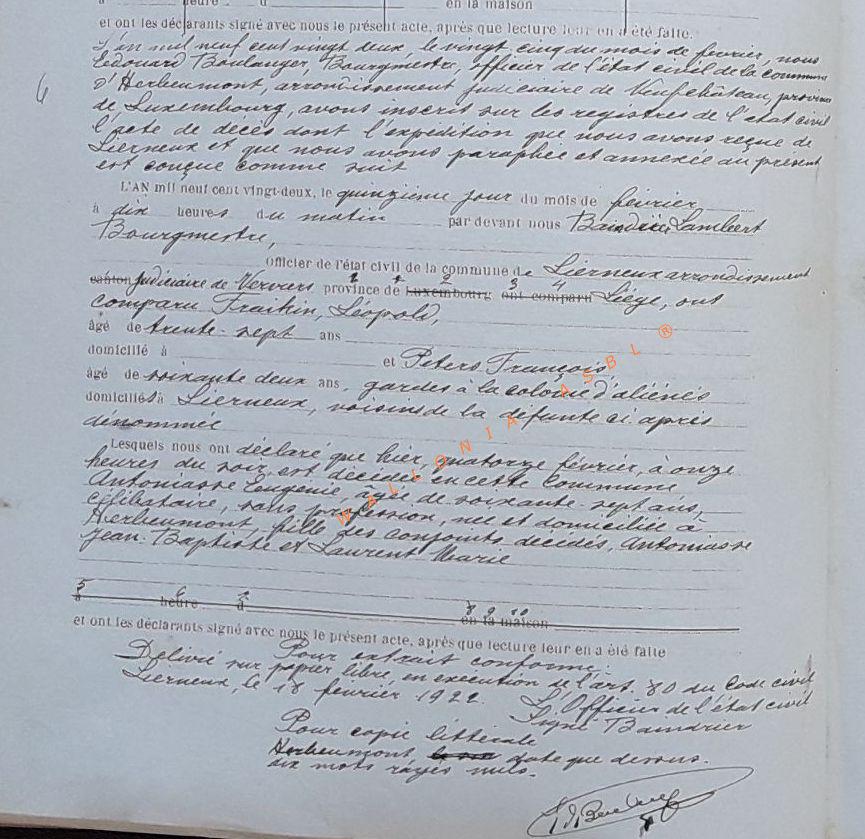 à heure d en la maison
et ont les déclarants signé avec nous le présent acte, après que lecture leur en a été faite.
L'an mil neuf cent vingt deux, le vingt cinq du mois de février, nous
Edouard Boulanger, Bourgmestre, officier de l'état civil de la commune
6
d'Herbeumont, arrondissement judiciaire de Neufchâteau, province
de Luxembourg, avons inscrit sur les registres de l'état civil
l'acte de décès dont l'expédition que nous avons reçue de
Lierneux et que nous avons paraphée et annexée au présent
est conçue comme suit
L'AN mil neuf cent vingt-deux, le quinzième jour du mois de février
à dix heures du matin par devant nous Baindrier, Lambert
Bourgmestre,
Officier de l'état civil de la commune de Lierneux arrondissement
canton judiciaire de Verviers province de Luxembourg ont comparu Liège, ont
comparu Fraikin, Léopold,
âgé de trente-sept ans
domicilié à et Peters, François
âgé de soixante deux ans, gardes à la colonie d'aliénés
domiciliés à Lierneux, voisins de la défunte ci après
dénommée
Lesquels nous ont déclaré que hier, quatorze février, à onze
heures du soir est décédée en cette commune
Antoniasse Eugénie, âgée de soixante-sept ans,
célibataire, sans profession, née et domiciliée à
Herbeumont, fille des conjoints décédés, Antoniasse
Jean-Baptiste et Laurent Marie
5 6 7 8 9 10
à heure d en la maison
et ont les déclarants signé avec nous le présent acte, après que lecture leur en a été faite
Pour extrait conforme:
Délivré sur papier libre, en exécution de l'art. 80 du Code civil
Lierneux, le 18 février 1922. L'Officier de l'état civil
Signé Baindrier
Pour copie littérale
Herbeumont date que dessus.
dix mots rayés nuls.
WALLONIA ASBL ®